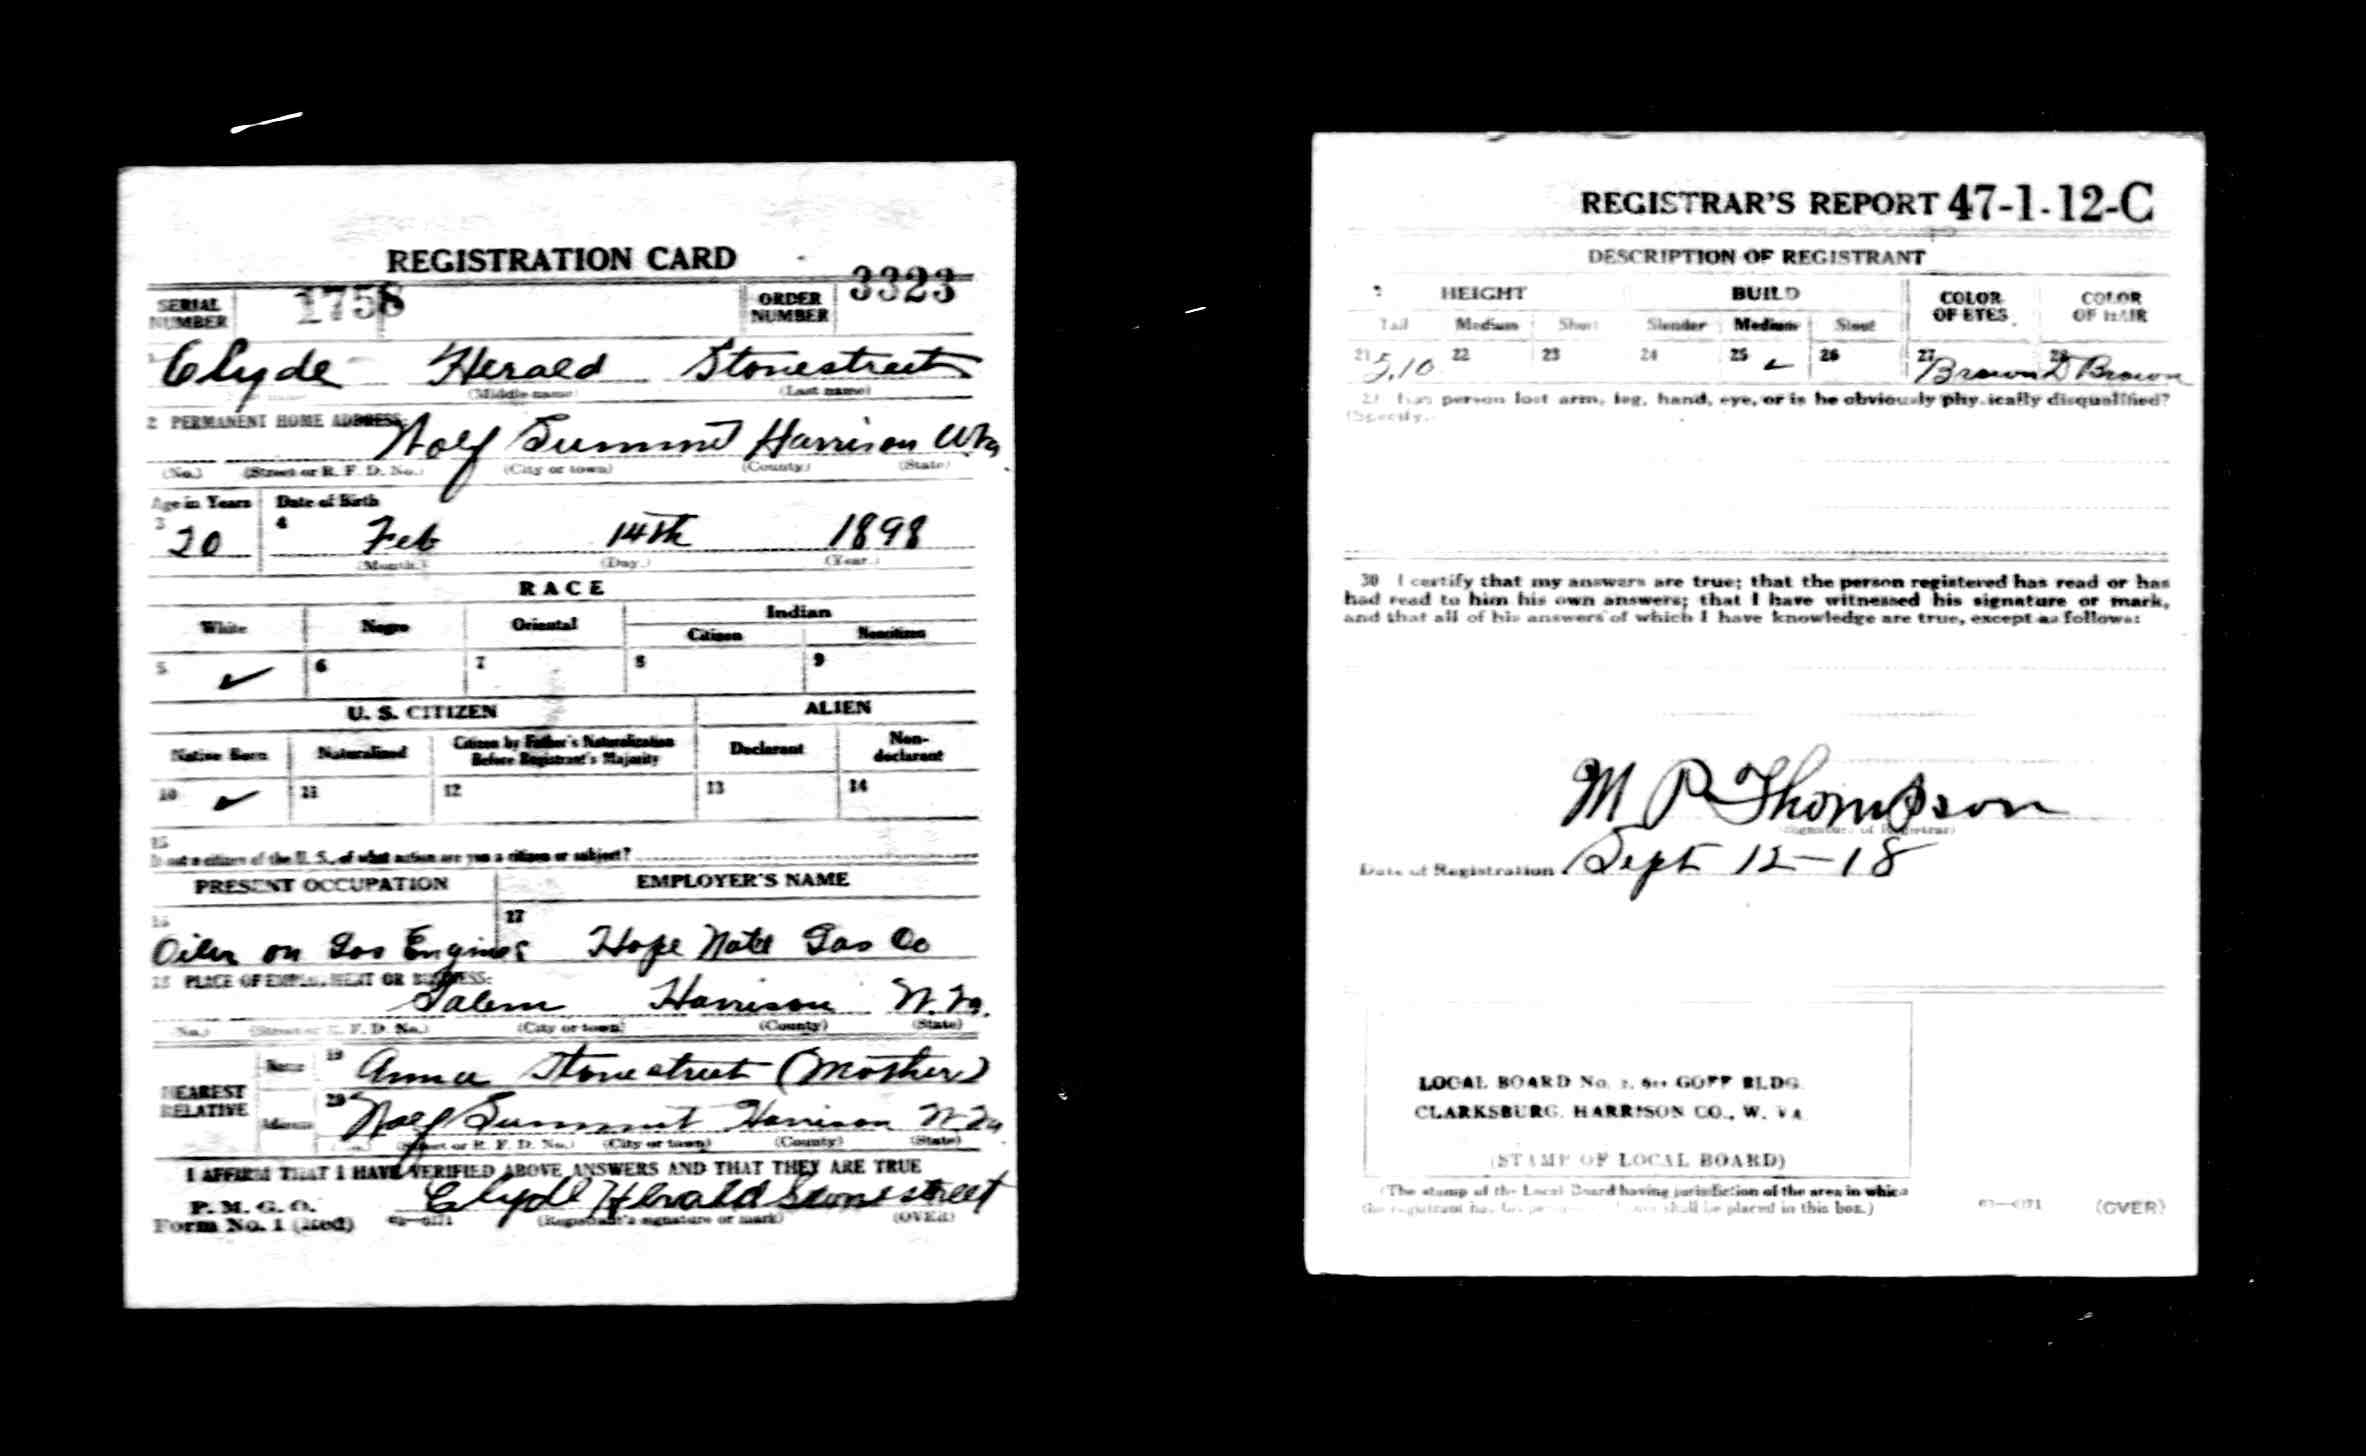 REGISTRATION CARD
SERIAL NUMBER 1758 ORDER NUMBER 3323
1 Clyde Herald Stonestreet
(Middle name) (Last name)
2 PERMANENT HOME ADDRESS:
Wolf Summit Harrison W Va
(No.) (Street or R. F. D. No.) (City or town) (County) (State)
Age in Years Date of Birth
3 20 4 Feb 14th 1898
(Month.) (Day.) (Year.)
RACE
White Negro Oriental Indian
Citizen Noncitizen
5 ✓ 6 7 8 9
U. S. CITIZEN ALIEN
Native Born Naturalized Citizen by Father's Naturalization Before Registrant's Majority Declarant Non-declarant
10 ✓ 11 12 13 14
15
If not a citizen of the U. S., of what nation are you a citizen or subject?
PRESENT OCCUPATION EMPLOYER'S NAME
16 17
Oiler on Gas Engines Hope Natl Gas Co
18 PLACE OF EMPLOYMENT OR BUSINESS:
Salem Harrison W. Va.
(No.) (Street or R. F. D. No.) (City or town) (County) (State)
NEAREST RELATIVE
Name 19 Anna Stonestreet (Mother)
Address 20 Wolf Summit Harrison W. Va
(Street or R. F. D. No.) (City or town) (County) (State)
I AFFIRM THAT I HAVE VERIFIED ABOVE ANSWERS AND THAT THEY ARE TRUE
P. M. G. O.
Form No. 1 (Red) 03—6171 Clyde Herald Stonestreet
(Registrant's signature or mark) (OVER)
REGISTRAR'S REPORT 47-1-12-C
DESCRIPTION OF REGISTRANT
HEIGHT BUILD COLOR OF EYES COLOR OF HAIR
Tall Medium Short Slender Medium Stout
21 5,10 22 23 24 25 ✓ 26 27 Brown 28 D Brown
29 Has person lost arm, leg, hand, eye, or is he obviously physically disqualified?
(Specify.)
30 I certify that my answers are true; that the person registered has read or has
had read to him his own answers; that I have witnessed his signature or mark,
and that all of his answers of which I have knowledge are true, except as follows:
M P Thompson
(Signature of Registrar)
Date of Registration Sept 12-18
LOCAL BOARD No. GOFF BLDG.
CLARKSBURG, HARRISON CO., W. VA.
(STAMP OF LOCAL BOARD)
(The stamp of the Local Board having jurisdiction of the area in which
the registrant has his shall be placed in this box.)
03—6171 (OVER)